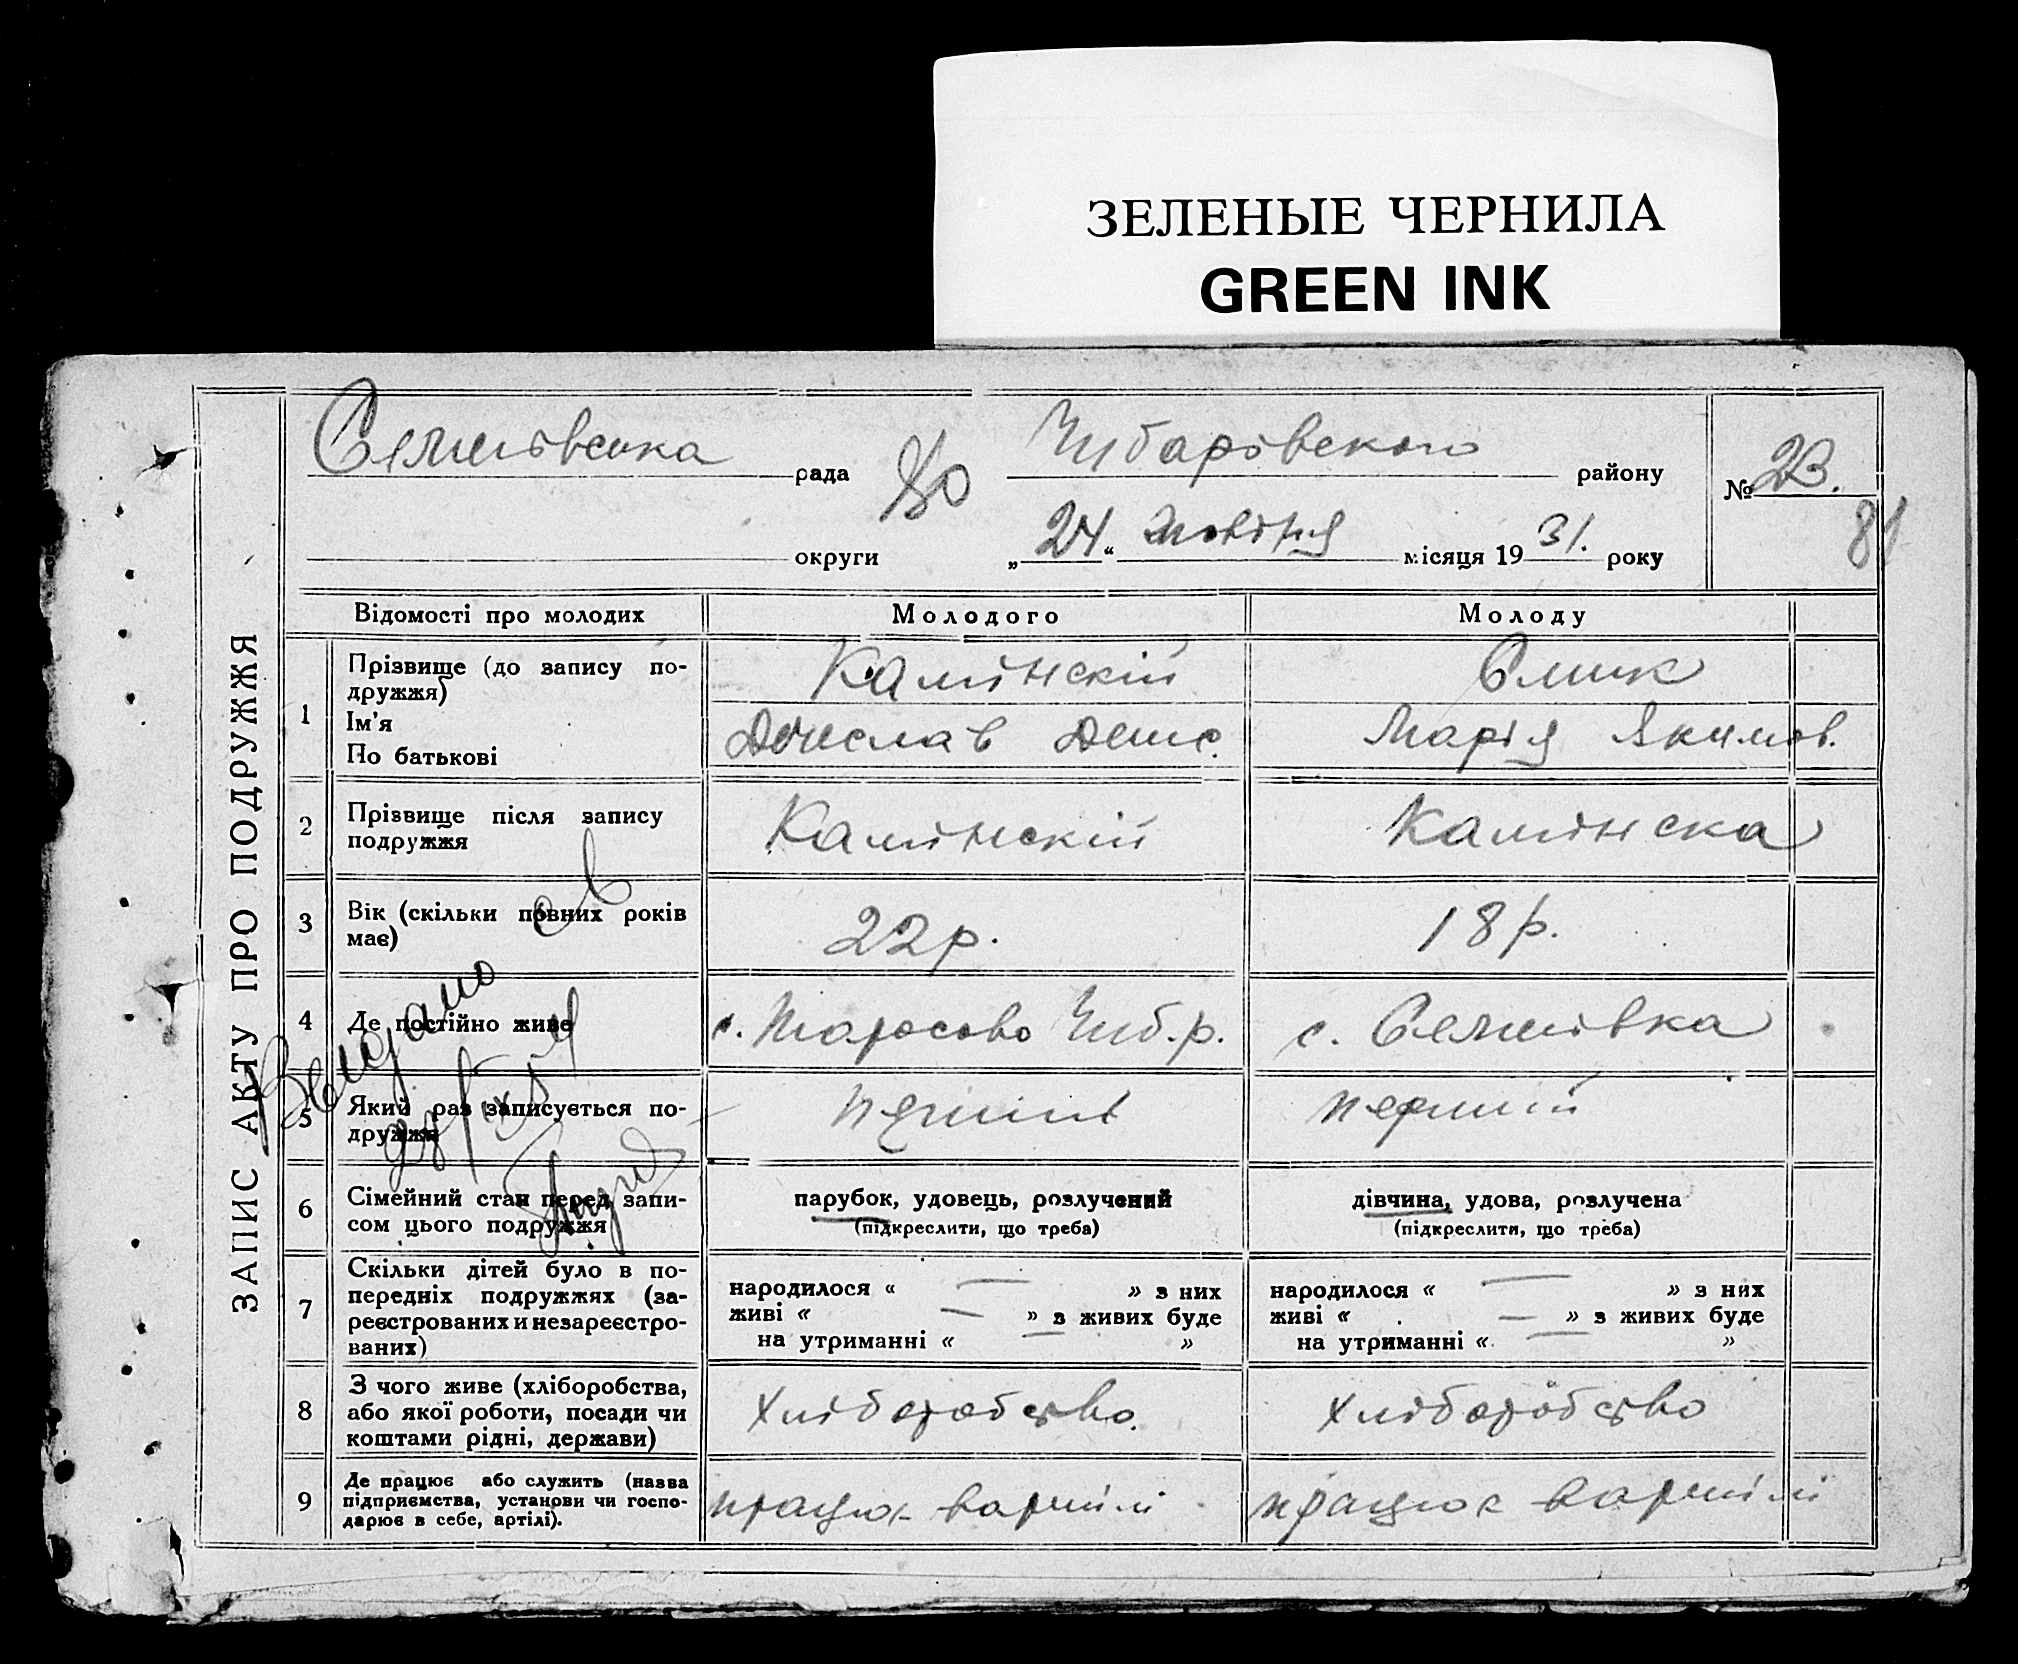 ЗЕЛЕНЫЕ ЧЕРНИЛА
GREEN INK
ЗАПИС АКТУ ПРО ПОДРУЖЖЯ
рада 80 Чубарівского району № 23.
округи „24“ Жовтня місяця 1931. року
81
Відомості про молодих Молодого Молоду
1 Прізвище (до запису по-
дружжя) Камінскій
Ім'я
По батькові Марія Якимов.
2 Прізвище після запису
подружжя Камінскій Камінска
3 Вік (скільки повних років
має) 22 р. 18 р.
4 Де постійно живе с. Тарасово Чуб. р. с. Семенівка
5 Який раз записується по-
дружжя перший перший
6 Сімейний стан перед запи-
сом цього подружжя парубок, удовець, розлучений дівчина, удова, розлучена
(підкреслити, що треба) (підкреслити, що треба)
7 Скільки дітей було в по-
передніх подружжях (за-
реєстрованих и незареєстро-
ваних)
народилося « — » з них
живі « — » з живих буде
на утриманні « — »
народилося « — » з них
живі « — » з живих буде
на утриманні « — »
8 З чого живе (хліборобства,
або якої роботи, посади чи
коштами рідні, держави) Хліборобство. Хліборобство
9 Де працює або служить (назва
підприємства, установи чи госпо-
дарює в себе, артілі). працює вартілі працює вартілі